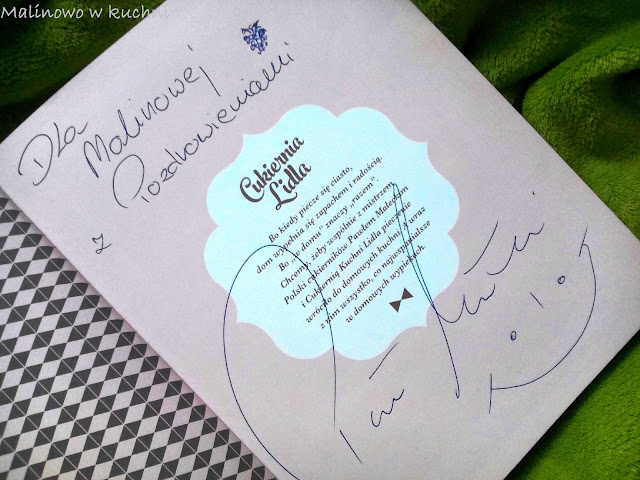 Malinowo w kuchni
Dla
Malinowej
z Pozdrowieniami
Cukiernia
Lidla
Bo kiedy piecze się ciasto,
dom wypełnia się zapachem i radością.
Bo „w domu” znaczy „razem”.
Chcemy, żeby wspólnie z mistrzem
Polski cukierników Pawłem Małeckim
i Cukiernią Kuchni Lidla pieczenie
wróciło do domowych kuchni, a wraz
z nim wszystko, co najwspanialsze
w domowych wypiekach.